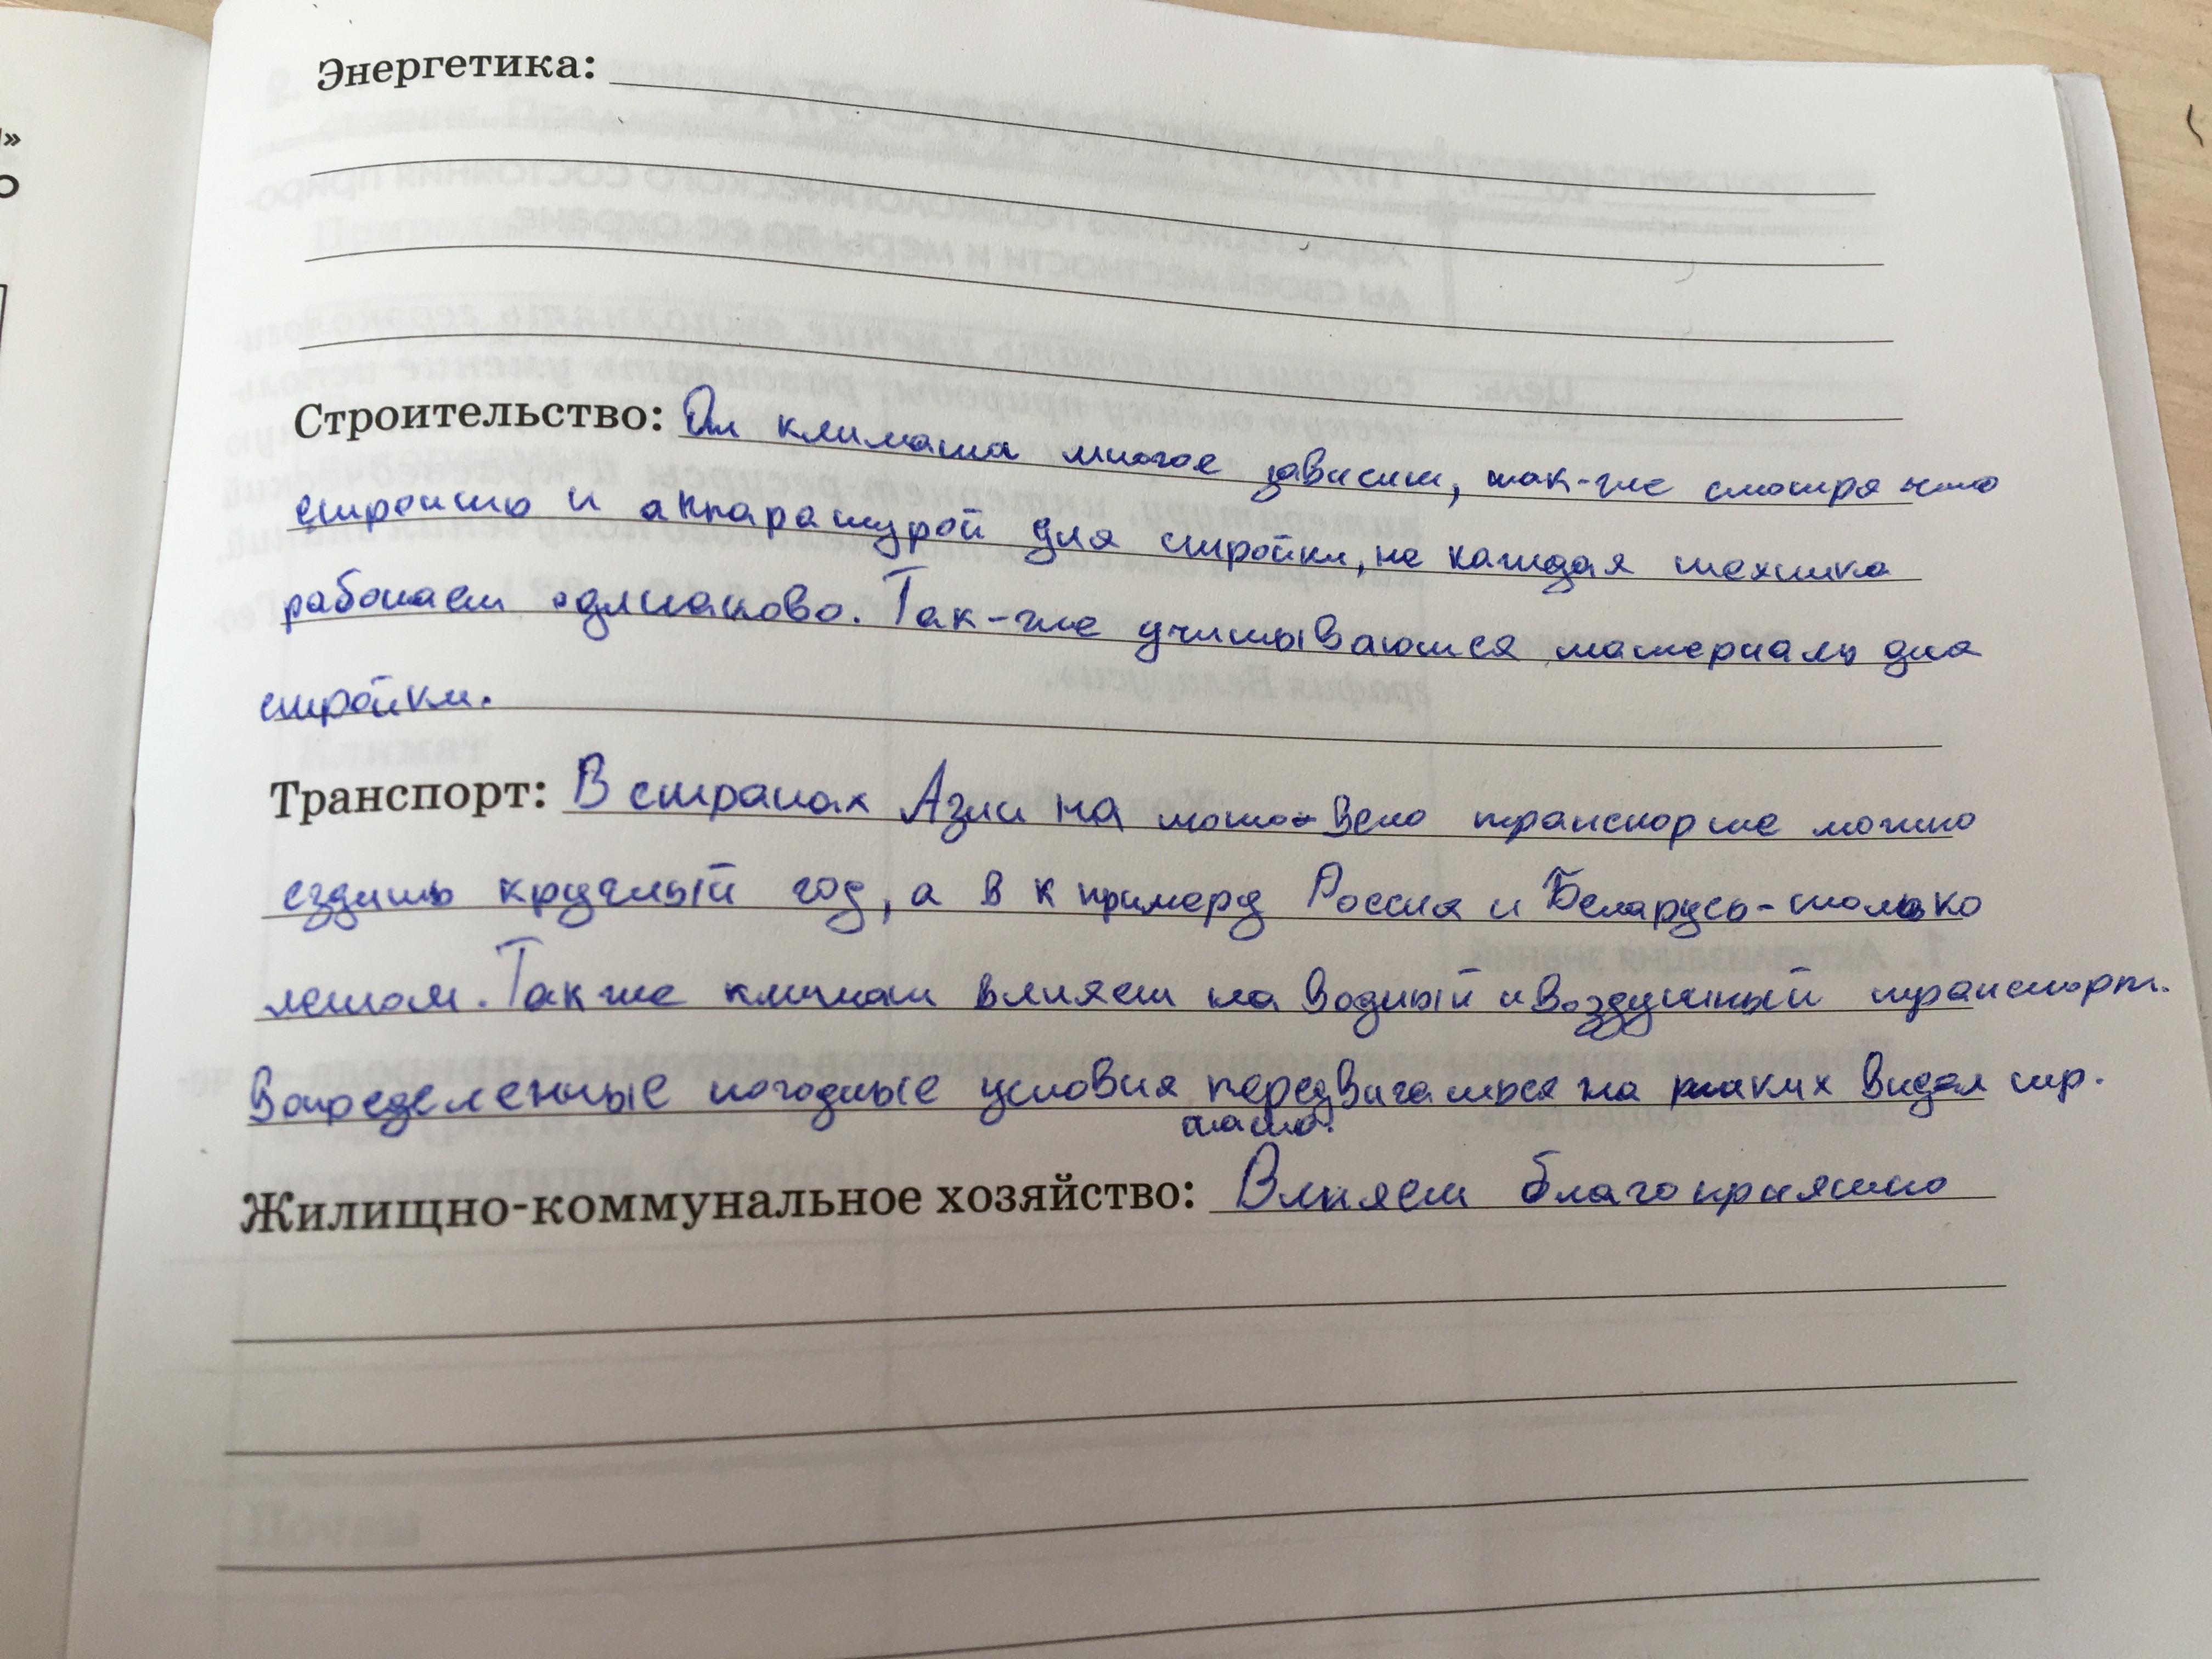 »
о
Энергетика:
Строительство: От климата многое зависит, так-же смотря что
строить и аппаратурой для стройки, не каждая техника
работает одинаково. Так-же учитываются материалы для
стройки.
Транспорт: В странах Азии на мото-вело транспорте можно
ездить круглый год, а в к примеру Россия и Беларусь-только
летом. Также климат влияет на водный и воздушный транспорт.
В определенные погодные условия передвигаться на таких видах тр.
Жилищно-коммунальное хозяйство: Влияет благоприятно